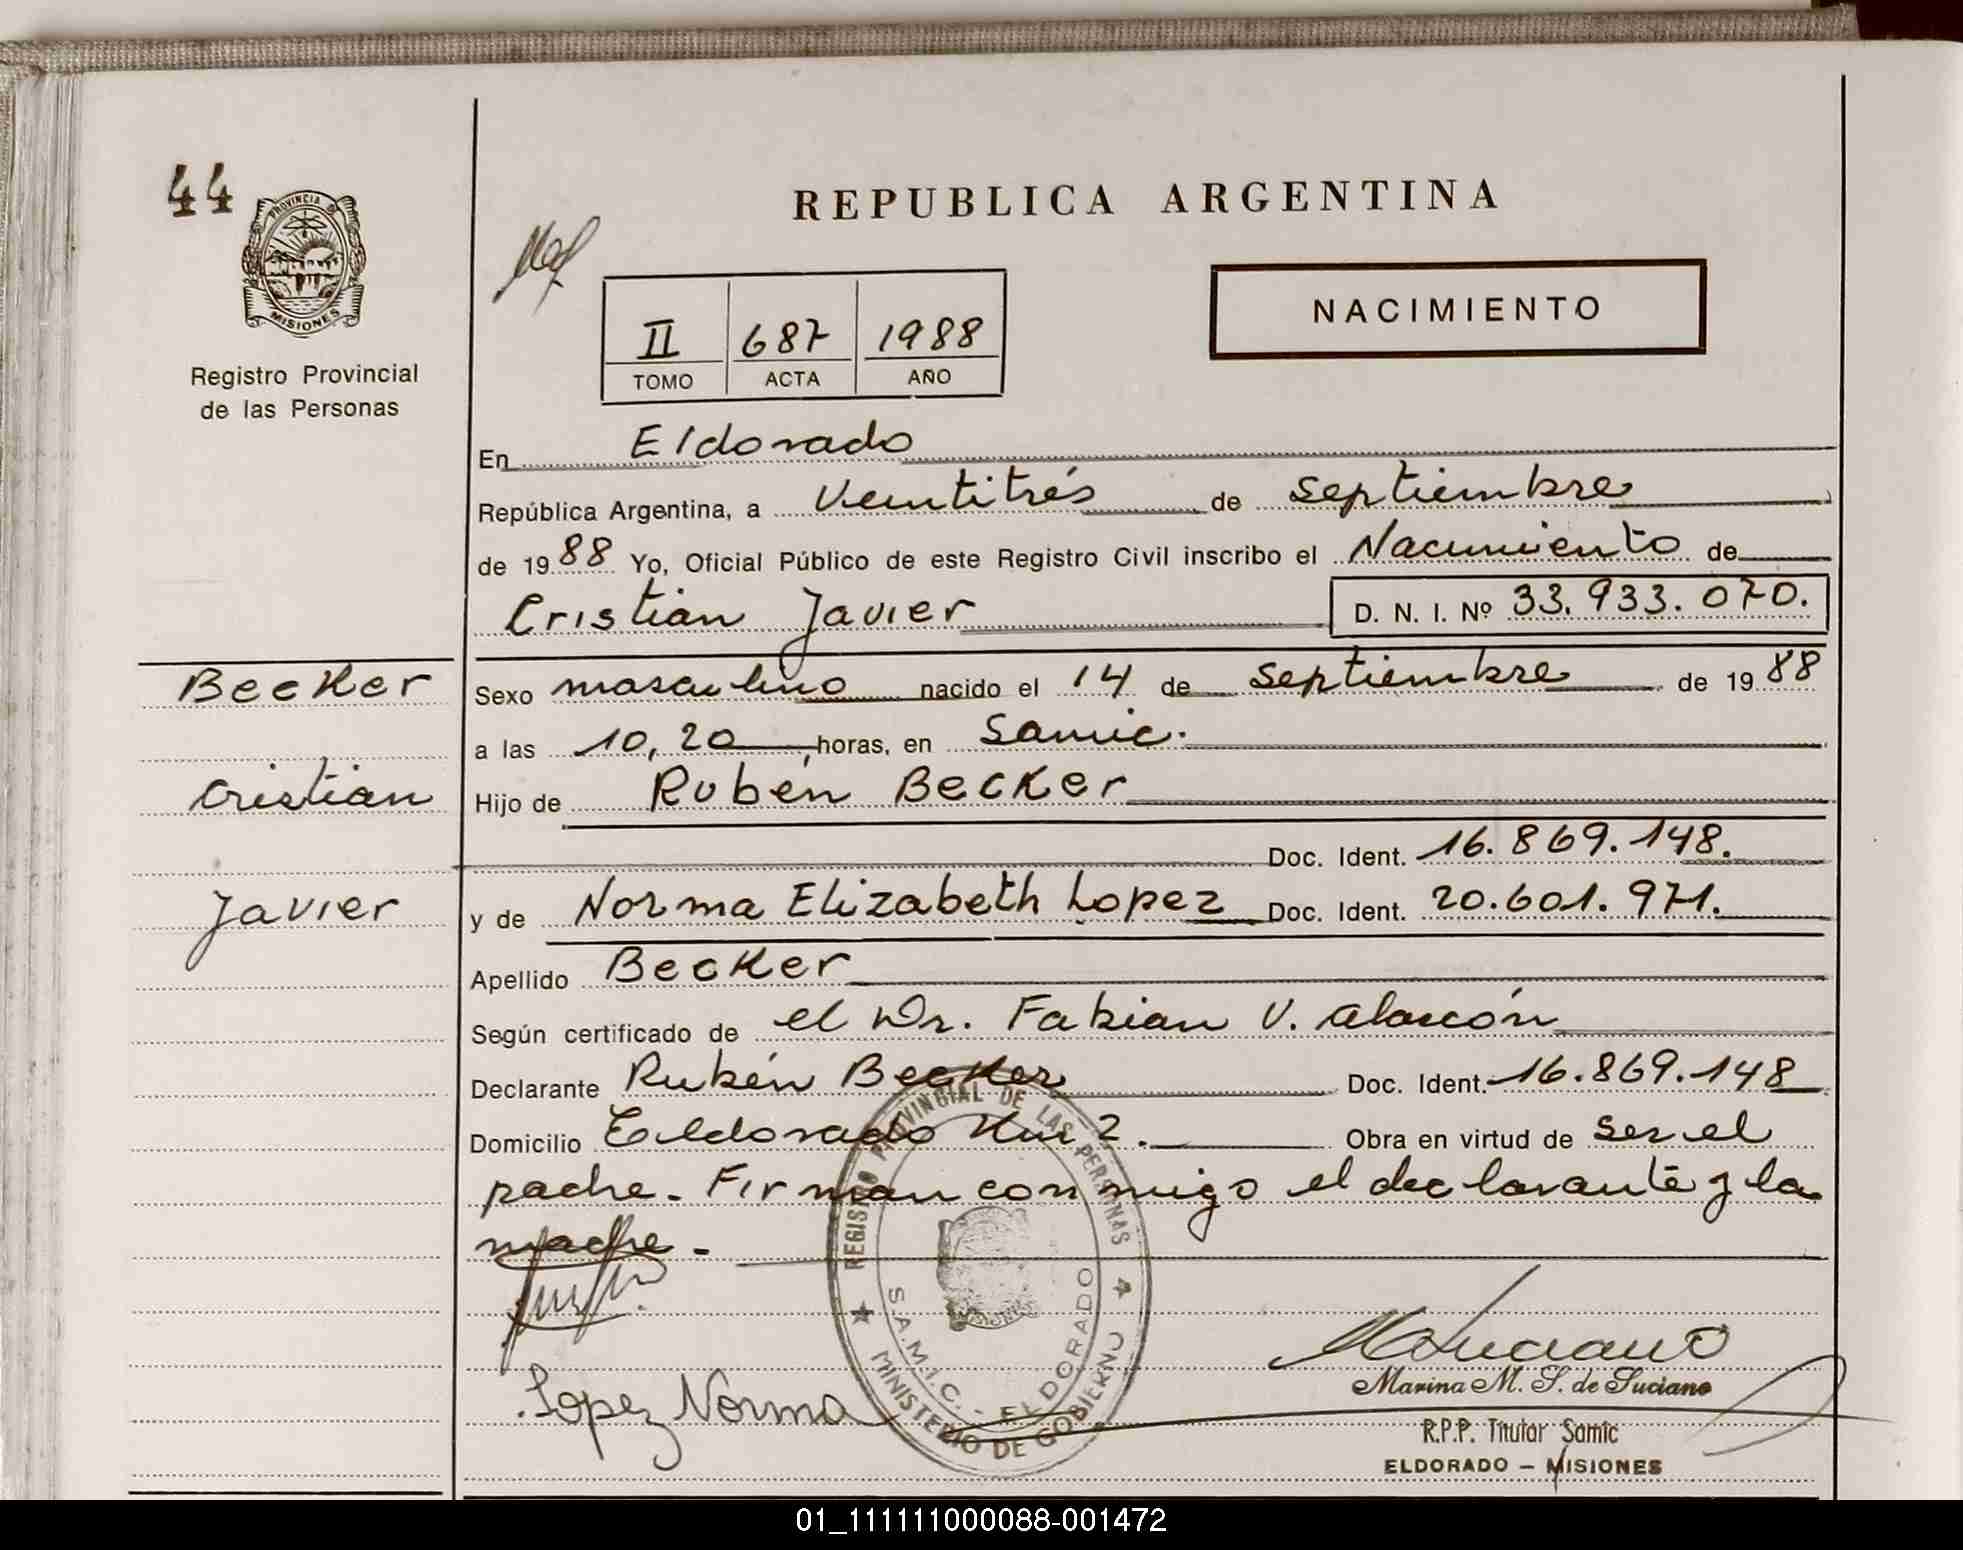 44
PROVINCIA DE
MISIONES
Registro Provincial
de las Personas
REPUBLICA ARGENTINA
NACIMIENTO
II 687 1988
TOMO ACTA AÑO
En Eldorado
República Argentina, a Veintitrés de septiembre
de 1988 Yo, Oficial Público de este Registro Civil inscribo el Nacimiento de
Cristian Javier D. N. I. Nº 33.933.070.
Becker
Sexo masculino nacido el 14 de septiembre de 1988
a las 10,20 horas, en Samic.
Cristian
Hijo de Rubén Becker
Doc. Ident. 16.869.148.
Javier
y de Norma Elizabeth Lopez Doc. Ident. 20.601.971.
Apellido Becker
Según certificado de el Dr. Fabian V. Alarcón
Declarante Rubén Becker Doc. Ident. 16.869.148
Domicilio Eldorado Km 2. Obra en virtud de ser el
padre. Firman conmigo el declarante y la
madre.-
REGISTRO PROVINCIAL DE LAS PERSONAS
S.A.M.I.C. - ELDORADO
MINISTERIO DE GOBIERNO
Lopez Norma
Marina M. S. de Luciano
R.P.P. Titular Samic
ELDORADO - MISIONES
01_111111000088-001472